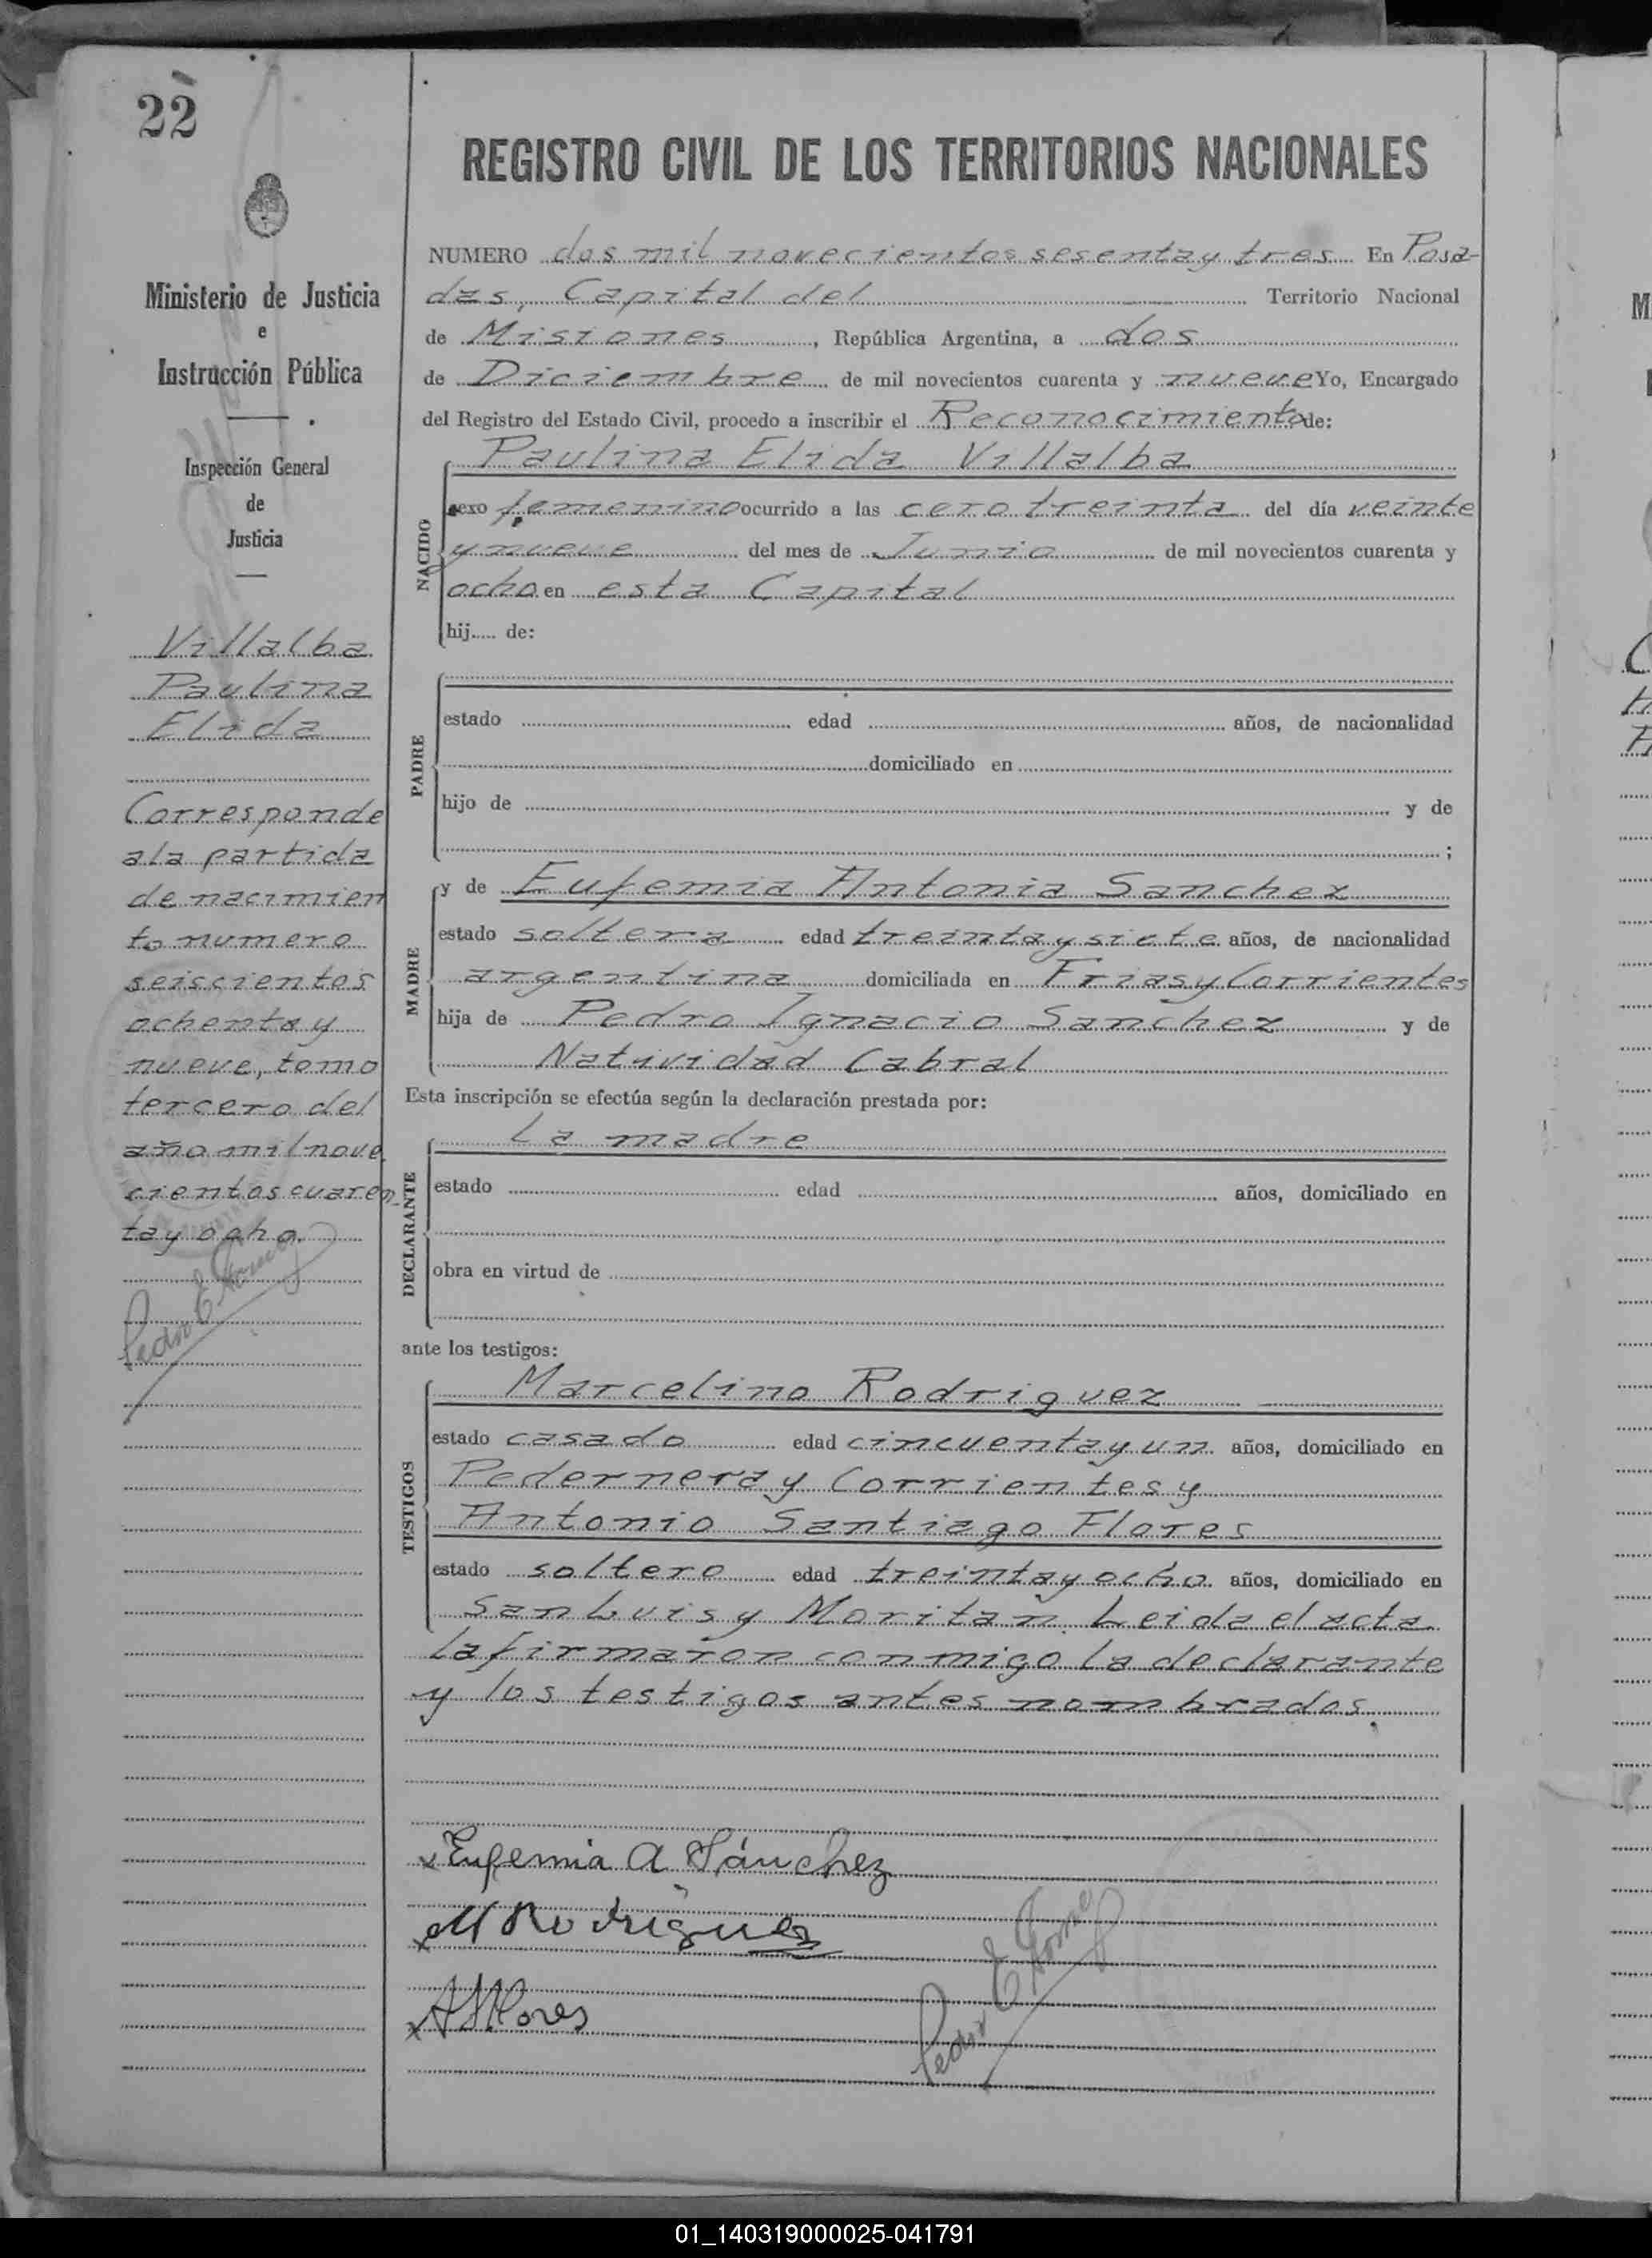 22
Ministerio de Justicia
e
Instrucción Pública
Inspección General
de
Justicia
Villalba
Paulina
Elida
Corresponde
a la partida
de nacimien
to numero
seiscientos
ochenta y
nueve, tomo
tercero del
año mil nove
cientos cuaren
ta y ocho.
REGISTRO CIVIL DE LOS TERRITORIOS NACIONALES
NUMERO dos mil novecientos sesenta y tres En Posa-
das, Capital del Territorio Nacional
de Misiones, República Argentina, a dos
de Diciembre de mil novecientos cuarenta y nueve Yo, Encargado
del Registro del Estado Civil, procedo a inscribir el Reconocimiento de:
NACIDO
Paulina Elida Villalba
sexo femenino ocurrido a las cero treinta del día veinte
y nueve del mes de Junio de mil novecientos cuarenta y
ocho en esta Capital
hij..... de:
PADRE
estado edad años, de nacionalidad
domiciliado en
hijo de y de
;
MADRE
y de Eufemia Antonia Sanchez
estado soltera edad treinta y siete años, de nacionalidad
argentina domiciliada en Frias y Corrientes
hija de Pedro Ignacio Sanchez y de
Natividad Cabral
Esta inscripción se efectúa según la declaración prestada por:
DECLARANTE
La madre
estado edad años, domiciliado en
obra en virtud de
ante los testigos:
TESTIGOS
Marcelino Rodriguez
estado casado edad cincuenta y un años, domiciliado en
Pedernera y Corrientes y
Antonio Santiago Flores
estado soltero edad treinta y ocho años, domiciliado en
San Luis y Moritan. Leida el acta
la firmaron conmigo la declarante
y los testigos antes nombrados.
Eufemia A Sánchez
M Rodriguez
A S Flores
Pedro E
01_140319000025-041791